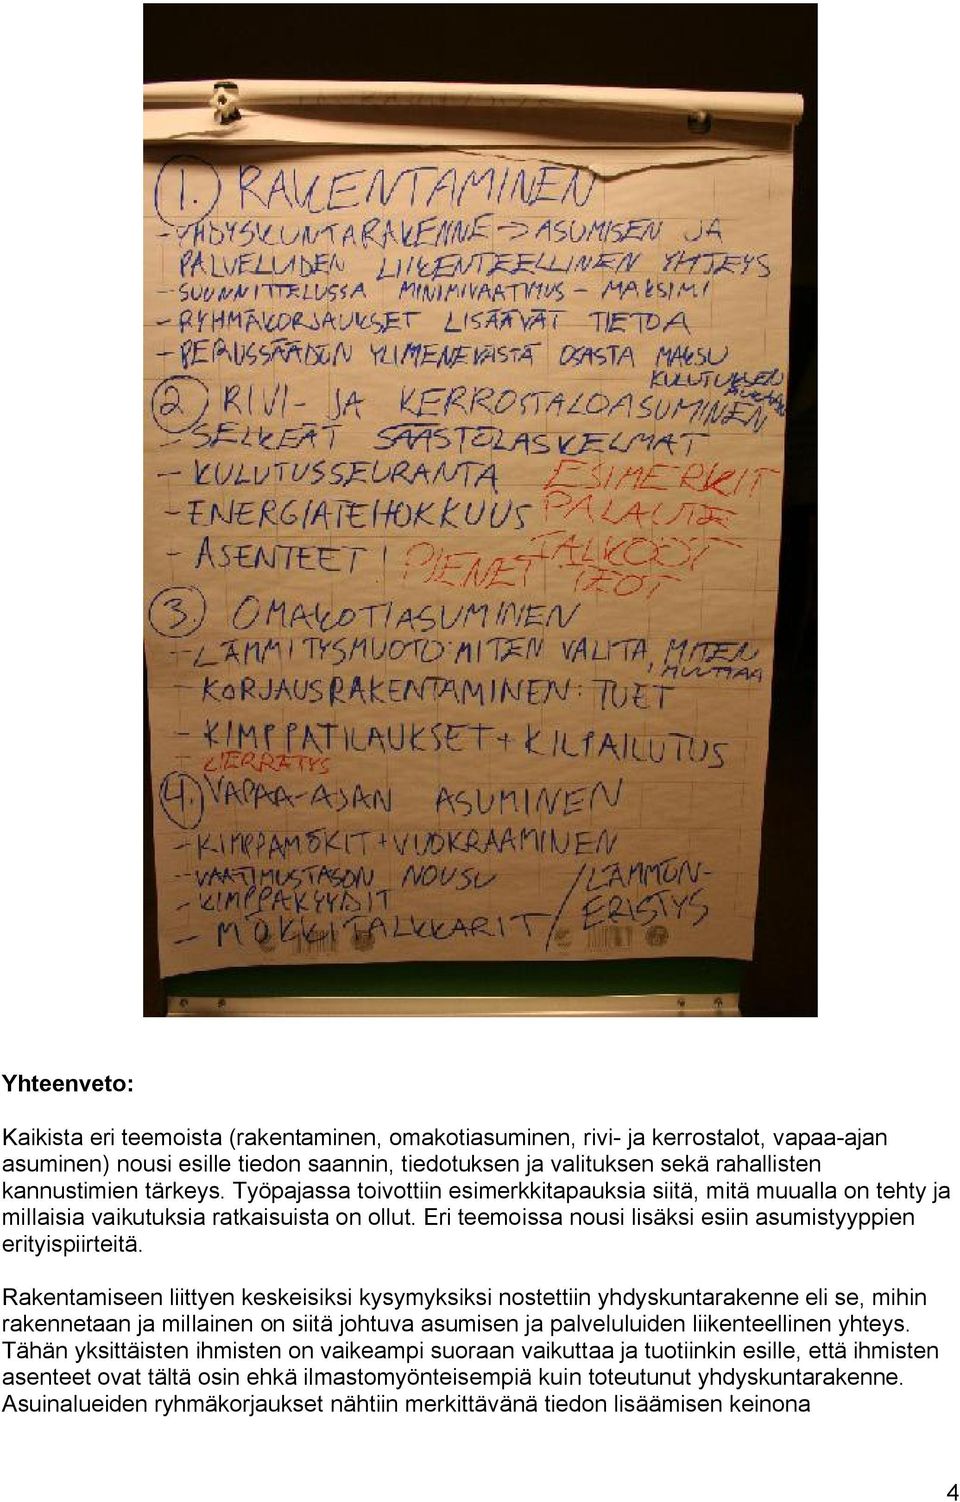 1. RAKENTAMINEN
- YHDYSKUNTARAKENNE -> ASUMISEN JA
PALVELUIDEN LIIKENTEELLINEN YHTEYS
- SUUNNITTELUSSA MINIMIVAATIMUS - MAKSIMI
- RYHMÄKORJAUKSET LISÄÄVÄT TIETOA
- PERUSSÄÄDÖN YLIMENEVÄSTÄ OSASTA MAKSU
KULUTUKSEN
2. RIVI- JA KERROSTALOASUMINEN
- SELKEÄT SÄÄSTÖLASKELMAT
- KULUTUSSEURANTA ESIMERKIT
- ENERGIATEHOKKUUS PALAUTE
- ASENTEET! PIENET TALKOOT
TEOT
3. OMAKOTIASUMINEN
- LÄMMITYSMUOTO: MITEN VALITA, MITEN
MUUTTAA
- KORJAUSRAKENTAMINEN: TUET
- KIMPPATILAUKSET + KILPAILUTUS
- CIERRÄTYS
4. VAPAA-AJAN ASUMINEN
- KIMPPAMÖKIT + VUOKRAAMINEN
- VAATIMUSTASON NOUSU / LÄMMÖN-
- KIMPPAKYYDIT ERISTYS
- MÖKKITALKKARIT /
Yhteenveto:
Kaikista eri teemoista (rakentaminen, omakotiasuminen, rivi- ja kerrostalot, vapaa-ajan
asuminen) nousi esille tiedon saannin, tiedotuksen ja valituksen sekä rahallisten
kannustimien tärkeys. Työpajassa toivottiin esimerkkitapauksia siitä, mitä muualla on tehty ja
millaisia vaikutuksia ratkaisuista on ollut. Eri teemoissa nousi lisäksi esiin asumistyyppien
erityispiirteitä.
Rakentamiseen liittyen keskeisiksi kysymyksiksi nostettiin yhdyskuntarakenne eli se, mihin
rakennetaan ja millainen on siitä johtuva asumisen ja palveluluiden liikenteellinen yhteys.
Tähän yksittäisten ihmisten on vaikeampi suoraan vaikuttaa ja tuotiinkin esille, että ihmisten
asenteet ovat tältä osin ehkä ilmastomyönteisempiä kuin toteutunut yhdyskuntarakenne.
Asuinalueiden ryhmäkorjaukset nähtiin merkittävänä tiedon lisäämisen keinona
4